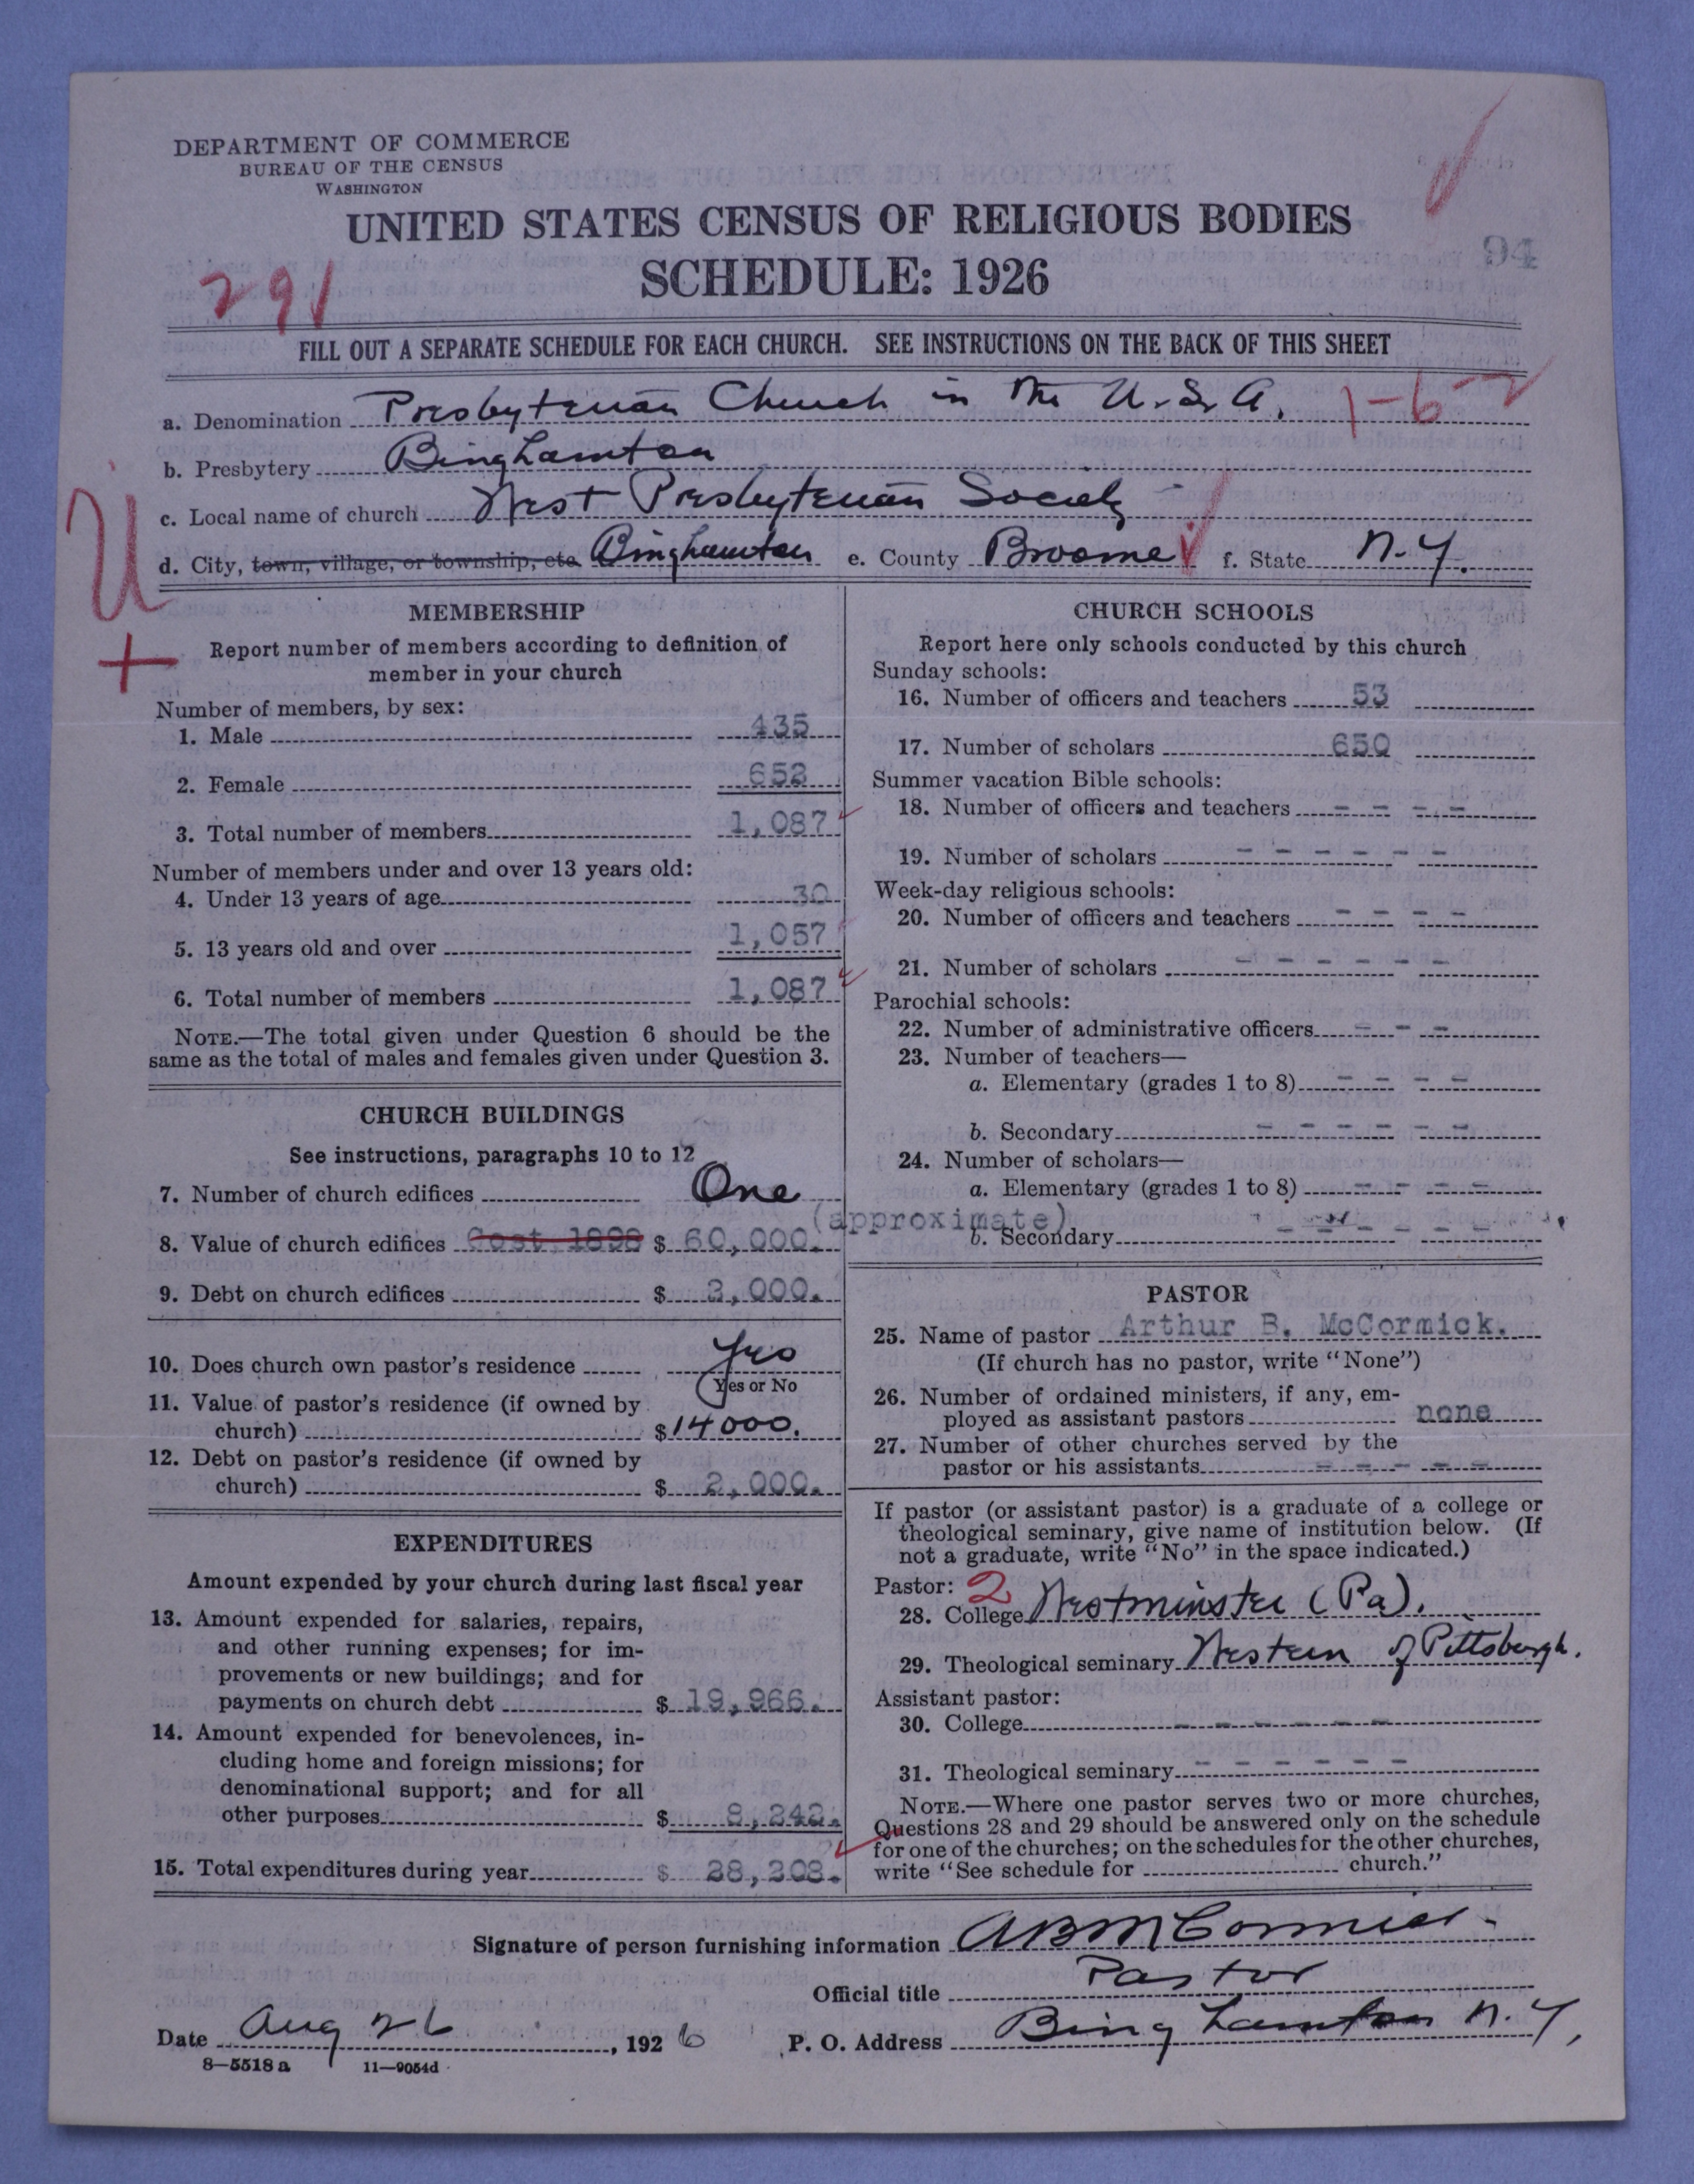 DEPARTMENT OF COMMERCE
BUREAU OF THE CENSUS
WASHINGTON
UNITED STATES CENSUS OF RELIGIOUS BODIES
SCHEDULE: 1926
94
291
FILL OUT A SEPARATE SCHEDULE FOR EACH CHURCH. SEE INSTRUCTIONS ON THE BACK OF THIS SHEET
a. Denomination Presbyterian Church in the U.S.A. 1-6-2
b. Presbytery Binghamton
c. Local name of church West Presbyterian Society
d. City, town, village, or township, etc. Binghamton e. County Broome f. State N.Y.
U
+
MEMBERSHIP
Report number of members according to definition of
member in your church
Number of members, by sex:
1. Male 435
2. Female 652
3. Total number of members 1,087
Number of members under and over 13 years old:
4. Under 13 years of age 30
5. 13 years old and over 1,057
6. Total number of members 1,087
NOTE.—The total given under Question 6 should be the
same as the total of males and females given under Question 3.
CHURCH BUILDINGS
See instructions, paragraphs 10 to 12
7. Number of church edifices One
8. Value of church edifices Cost 1898 $ 60,000. (approximate)
9. Debt on church edifices $ 3,000.
10. Does church own pastor's residence Yes
Yes or No
11. Value of pastor's residence (if owned by
church) $ 14000.
12. Debt on pastor's residence (if owned by
church) $ 2,000.
EXPENDITURES
Amount expended by your church during last fiscal year
13. Amount expended for salaries, repairs,
and other running expenses; for im-
provements or new buildings; and for
payments on church debt $ 19,966.
14. Amount expended for benevolences, in-
cluding home and foreign missions; for
denominational support; and for all
other purposes $ 8,242.
15. Total expenditures during year $ 28,208.
CHURCH SCHOOLS
Report here only schools conducted by this church
Sunday schools:
16. Number of officers and teachers 53
17. Number of scholars 650
Summer vacation Bible schools:
18. Number of officers and teachers - - - -
19. Number of scholars - - - - - -
Week-day religious schools:
20. Number of officers and teachers - - - -
21. Number of scholars - - - - - -
Parochial schools:
22. Number of administrative officers - - -
23. Number of teachers—
a. Elementary (grades 1 to 8) - - - -
b. Secondary - - - - - -
24. Number of scholars—
a. Elementary (grades 1 to 8) - - - -
b. Secondary - - - - - -
PASTOR
25. Name of pastor Arthur B. McCormick.
(If church has no pastor, write "None")
26. Number of ordained ministers, if any, em-
ployed as assistant pastors none
27. Number of other churches served by the
pastor or his assistants - - - - -
If pastor (or assistant pastor) is a graduate of a college or
theological seminary, give name of institution below. (If
not a graduate, write "No" in the space indicated.)
Pastor: 2
28. College Westminster (Pa).
29. Theological seminary Western of Pittsburgh.
Assistant pastor:
30. College - - - - - -
31. Theological seminary - - - - - -
NOTE.—Where one pastor serves two or more churches,
Questions 28 and 29 should be answered only on the schedule
for one of the churches; on the schedules for the other churches,
write "See schedule for church."
Signature of person furnishing information A B McCormick.
Official title Pastor
Date Aug 26, 1926 P. O. Address Binghamton N.Y,
8—5518 a 11—9054d